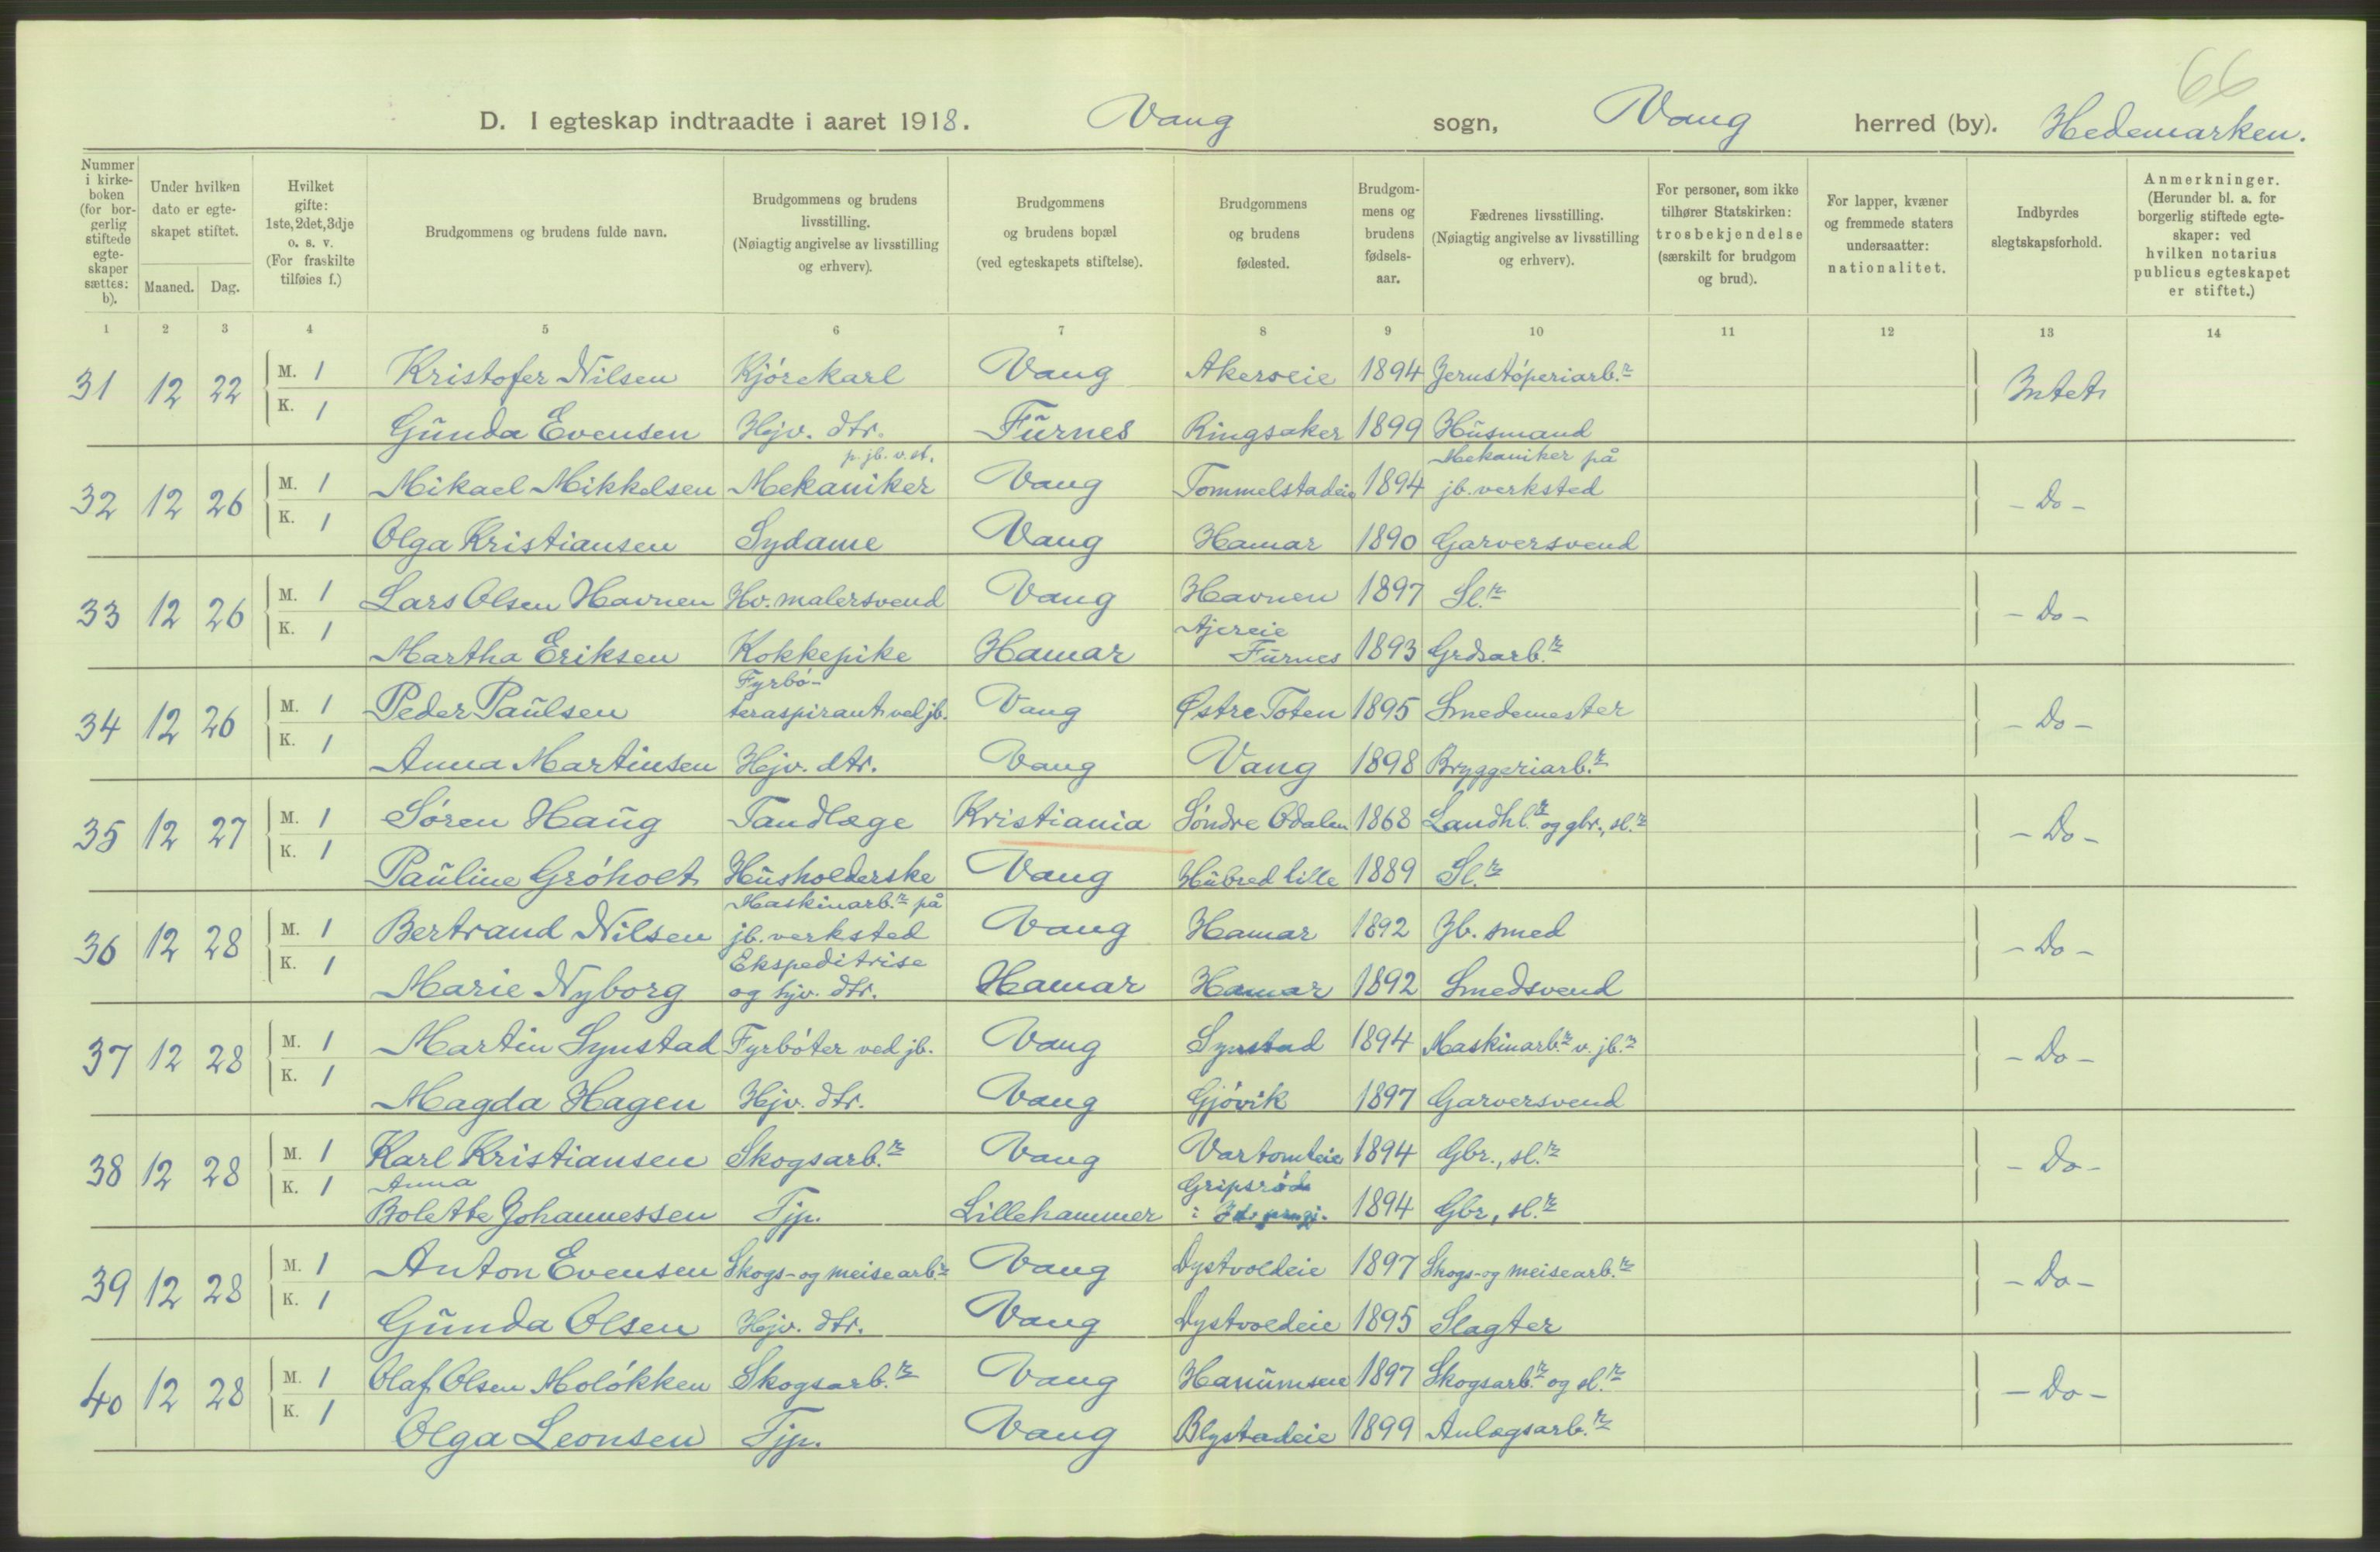 66
D. I egteskap indtraadte i aaret 1918. Vang sogn, Vang herred (by). Hedemarken.
Nummer i kirke-boken (for bor-gerlig stiftede egte-skaper sættes: b).
Under hvilken dato er egte-skapet stiftet.
Maaned. Dag.
Hvilket gifte: 1ste, 2det, 3dje o. s. v. (For fraskilte tilføies f.)
Brudgommens og brudens fulde navn.
Brudgommens og brudens livsstilling. (Nøiagtig angivelse av livsstilling og erhverv).
Brudgommens og brudens bopæl (ved egteskapets stiftelse).
Brudgommens og brudens fødested.
Brudgom-mens og brudens fødsels-aar.
Fædrenes livsstilling. (Nøiagtig angivelse av livsstilling og erhverv).
For personer, som ikke tilhører Statskirken: trosbekjendelse (særskilt for brudgom og brud).
For lapper, kvæner og fremmede staters undersaatter: nationalitet.
Indbyrdes slegtskapsforhold.
Anmerkninger. (Herunder bl. a. for borgerlig stiftede egte-skaper: ved hvilken notarius publicus egteskapet er stiftet.)
1 2 3 4 5 6 7 8 9 10 11 12 13 14
31 12 22 M. 1 Kristofer Nilsen Kjørekarl Vang Akerseie 1894 Jernstøperiarb.r Intet
K. 1 Gunda Evensen Hjv. dtr. Furnes Ringsaker 1899 Husmand
32 12 26 M. 1 Mikael Mikkelsen Mekaniker p. jb. v.st. Vang Tommelstadeie 1894 Mekaniker på jb. verksted - Do -
K. 1 Olga Kristiansen Sydame Vang Hamar 1890 Garversvend
33 12 26 M. 1 Lars Olsen Havnen Hv. malersvend Vang Havnen 1897 Sl.r - Do -
K. 1 Martha Eriksen Kokkepike Hamar Ajereie Furnes 1893 Grdsarb.r
34 12 26 M. 1 Peder Paulsen Fyrbø-teraspirant ved jb. Vang Østre Toten 1895 Smedemester - Do -
K. 1 Anna Martinsen Hjv. dtr. Vang Vang 1898 Bryggeriarb.r
35 12 27 M. 1 Søren Haug Tandlæge Kristiania Søndre Odalen 1868 Landhl.r og gbr., sl.r - Do -
K. 1 Pauline Grøholt Husholderske Vang Hubred lille 1889 Sl.r
36 12 28 M. 1 Bertrand Nilsen Maskinarb.r på jb. verksted Vang Hamar 1892 Jb. smed - Do -
K. 1 Marie Nyborg Ekspeditrise og hjv. dtr. Hamar Hamar 1892 Smedsvend
37 12 28 M. 1 Martin Synstad Fyrbøter ved jb. Vang Synstad 1894 Maskinarb.r v. jb.r - Do -
K. 1 Magda Hagen Hjv. dtr. Vang Gjøvik 1897 Garversvend
38 12 28 M. 1 Karl Kristiansen Skogsarb.r Vang Vartomteie 1894 Gbr., sl.r - Do -
K. 1 Anna Bolette Johannessen Tjp. Lillehammer Gripsrød i 1894 Gbr, sl.r
39 12 28 M. 1 Anton Evensen Skogs- og meisearb.r Vang Dystvoldeie 1897 Skogs- og meisearb.r - Do -
K. 1 Gunda Olsen Hjv. dtr. Vang Dystvoldeie 1895 Slagter
40 12 28 M. 1 Olaf Olsen Moløkken Skogsarb.r Vang Hanumseie 1897 Skogsarb.r og sl.r - Do -
K. 1 Olga Leonsen Tjp. Vang Blystadeie 1899 Anlægsarb.r